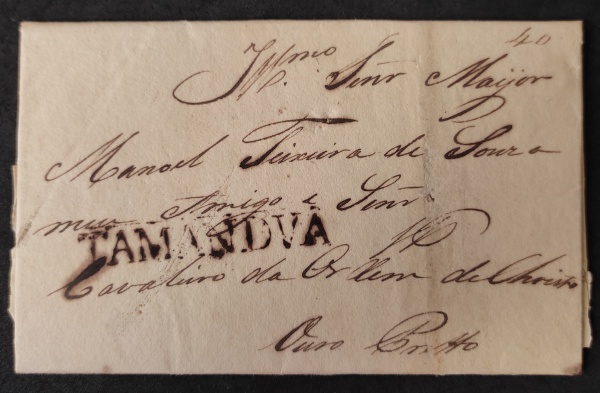 40
Illmo. Señr Maijor
Manoel Teixeira de Souza
meu Amigo e Señr
TAMANDVA
Cavaleiro da Ordem de Christo
Ouro Pretto